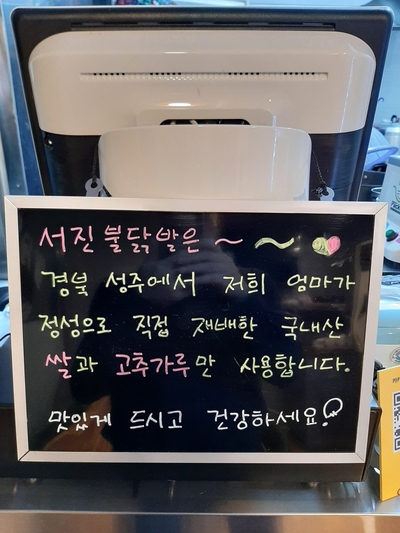 서진불닭발은 ~ ~
경북 성주에서 저희 엄마가
정성으로 직접 재배한 국내산
쌀과 고추가루만 사용합니다.
맛있게 드시고 건강하세요!